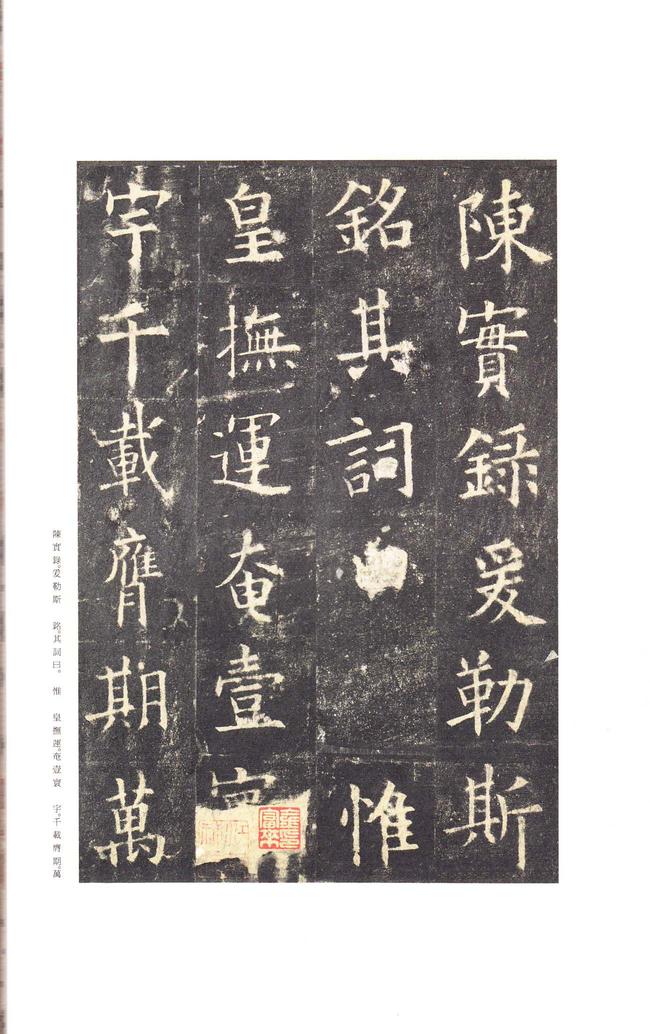 陳實録爰勒斯
銘其詞曰惟
皇撫運奄壹寰
宇千載膺期萬
陳實錄。爰勒斯 銘。其詞曰。 惟 皇撫運。奄壹寰 宇。千載膺期。萬